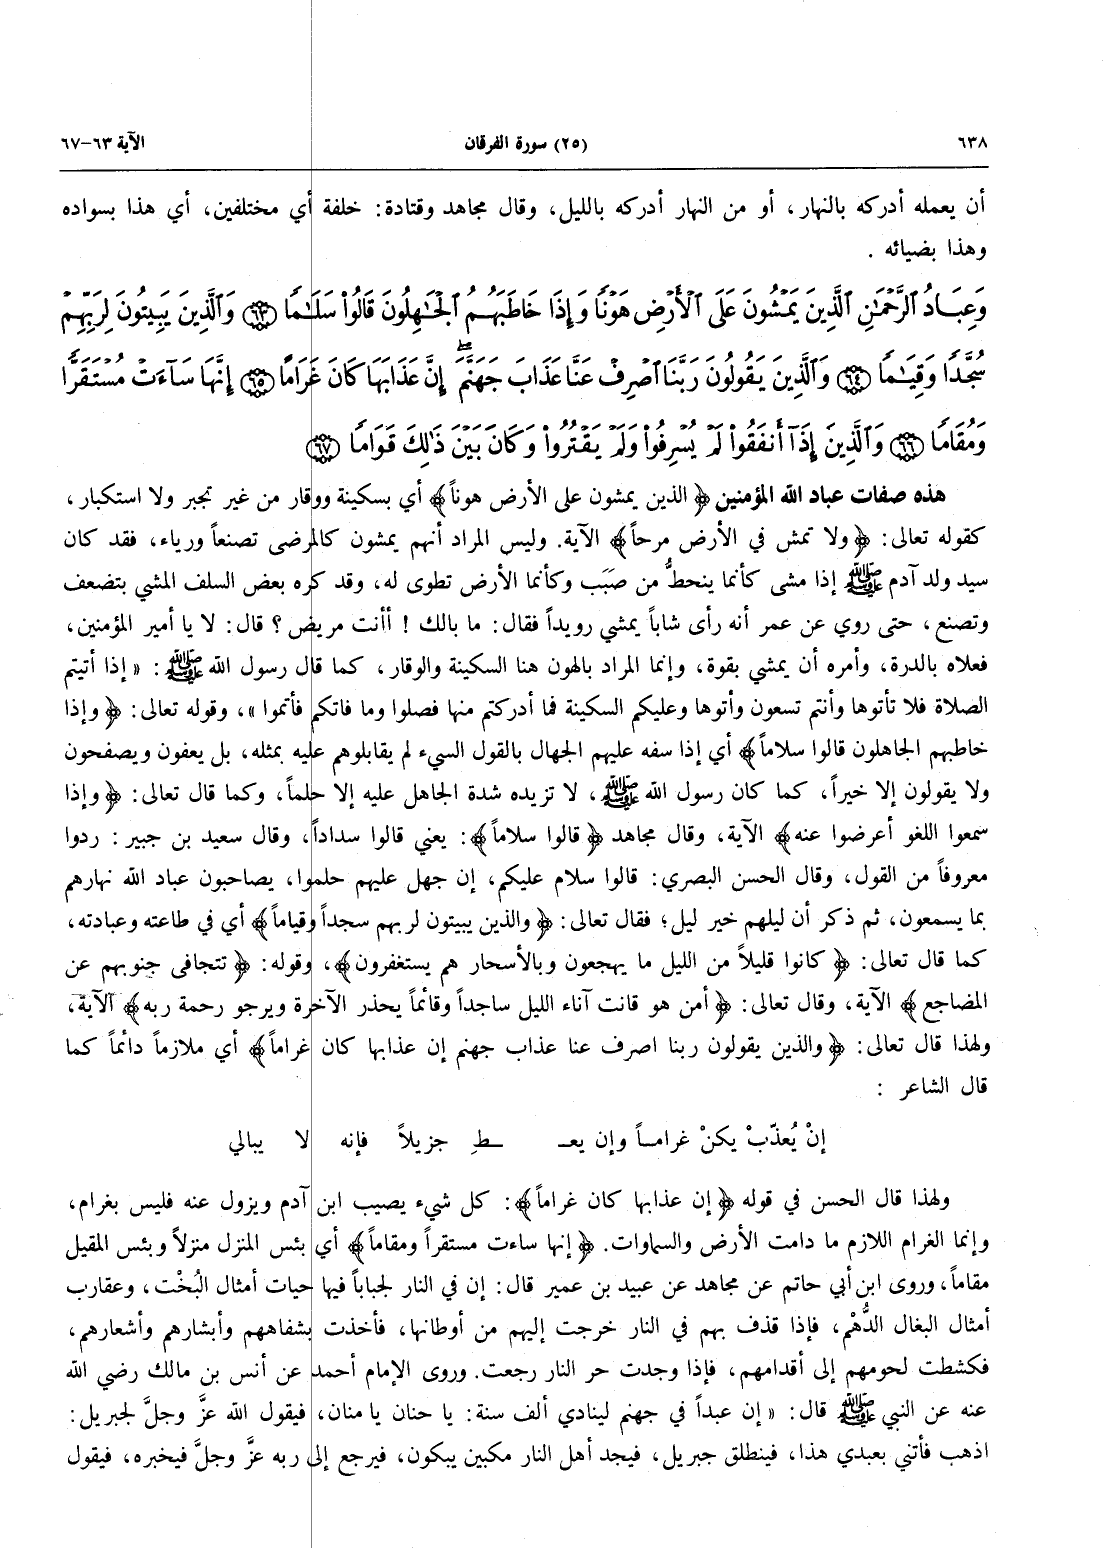 ٦٣٨ (٢٥) سورة الفرقان الآية ٦٣-٦٧
أن يعمله أدركه بالنهار، أو من النهار أدركه بالليل، وقال مجاهد وقتادة: خلفة أي مختلفين، أي هذا بسواده
وهذا بضيائه .
وَعِبَادُ ٱلرَّحْمَٰنِ ٱلَّذِينَ يَمْشُونَ عَلَى ٱلْأَرْضِ هَوْنًا وَإِذَا خَاطَبَهُمُ ٱلْجَٰهِلُونَ قَالُوا۟ سَلَٰمًا ﴿٦٣﴾ وَٱلَّذِينَ يَبِيتُونَ لِرَبِّهِمْ
سُجَّدًا وَقِيَٰمًا ﴿٦٤﴾ وَٱلَّذِينَ يَقُولُونَ رَبَّنَا ٱصْرِفْ عَنَّا عَذَابَ جَهَنَّمَ ۖ إِنَّ عَذَابَهَا كَانَ غَرَامًا ﴿٦٥﴾ إِنَّهَا سَآءَتْ مُسْتَقَرًّا
وَمُقَامًا ﴿٦٦﴾ وَٱلَّذِينَ إِذَآ أَنفَقُوا۟ لَمْ يُسْرِفُوا۟ وَلَمْ يَقْتُرُوا۟ وَكَانَ بَيْنَ ذَٰلِكَ قَوَامًا ﴿٦٧﴾
هذه صفات عباد الله المؤمنين ﴿الذين يمشون على الأرض هوناً﴾ أي بسكينة ووقار من غير تجبر ولا استكبار،
كقوله تعالى: ﴿ولا تمش في الأرض مرحاً﴾ الآية. وليس المراد أنهم يمشون كالمرضى تصنعاً ورياء، فقد كان
سيد ولد آدم ﷺ إذا مشى كأنما ينحطُّ من صَبَب وكأنما الأرض تطوى له، وقد كره بعض السلف المشي بتضعف
وتصنع، حتى روي عن عمر أنه رأى شاباً يمشي رويداً فقال: ما بالك ! أأنت مريض؟ قال: لا يا أمير المؤمنين،
فعلاه بالدرة، وأمره أن يمشي بقوة، وإنما المراد بالهون هنا السكينة والوقار، كما قال رسول الله ﷺ: « إذا أتيتم
الصلاة فلا تأتوها وأنتم تسعون وأتوها وعليكم السكينة فما أدركتم منها فصلوا وما فاتكم فأتموا »، وقوله تعالى: ﴿وإذا
خاطبهم الجاهلون قالوا سلاماً﴾ أي إذا سفه عليهم الجهال بالقول السيء لم يقابلوهم عليه بمثله، بل يعفون ويصفحون
ولا يقولون إلا خيراً، كما كان رسول الله ﷺ، لا تزيده شدة الجاهل عليه إلا حلماً، وكما قال تعالى: ﴿وإذا
سمعوا اللغو أعرضوا عنه﴾ الآية، وقال مجاهد ﴿قالوا سلاماً﴾: يعني قالوا سداداً، وقال سعيد بن جبير: ردوا
معروفاً من القول، وقال الحسن البصري: قالوا سلام عليكم، إن جهل عليهم حلموا، يصاحبون عباد الله نهارهم
بما يسمعون، ثم ذكر أن ليلهم خير ليل؛ فقال تعالى: ﴿والذين يبيتون لربهم سجداً وقياماً﴾ أي في طاعته وعبادته،
كما قال تعالى: ﴿كانوا قليلاً من الليل ما يهجعون وبالأسحار هم يستغفرون﴾، وقوله: ﴿تتجافى جنوبهم عن
المضاجع﴾ الآية، وقال تعالى: ﴿أمن هو قانت آناء الليل ساجداً وقائماً يحذر الآخرة ويرجو رحمة ربه﴾ الآية،
ولهذا قال تعالى: ﴿والذين يقولون ربنا اصرف عنا عذاب جهنم إن عذابها كان غراماً﴾ أي ملازماً دائماً كما
قال الشاعر :
إنْ يُعذّبْ يكنْ غرامــاً وإن يعـ ـــطِ جزيلاً فإنه لا يبالي
ولهذا قال الحسن في قوله ﴿إن عذابها كان غراماً﴾: كل شيء يصيب ابن آدم ويزول عنه فليس بغرام،
وإنما الغرام اللازم ما دامت الأرض والسماوات. ﴿إنها ساءت مستقراً ومقاماً﴾ أي بئس المنزل منزلاً وبئس المقيل
مقاماً، وروى ابن أبي حاتم عن مجاهد عن عبيد بن عمير قال: إن في النار لجباباً فيها حيات أمثال البُخْت، وعقارب
أمثال البغال الدُّهْم، فإذا قذف بهم في النار خرجت إليهم من أوطانها، فأخذت بشفاههم وأبشارهم وأشعارهم،
فكشطت لحومهم إلى أقدامهم، فإذا وجدت حر النار رجعت. وروى الإمام أحمد عن أنس بن مالك رضي الله
عنه عن النبي ﷺ قال: « إن عبداً في جهنم لينادي ألف سنة: يا حنان يا منان، فيقول الله عزَّ وجلَّ لجبريل:
اذهب فأتني بعبدي هذا، فينطلق جبريل، فيجد أهل النار مكبين يبكون، فيرجع إلى ربه عزَّ وجلَّ فيخبره، فيقول